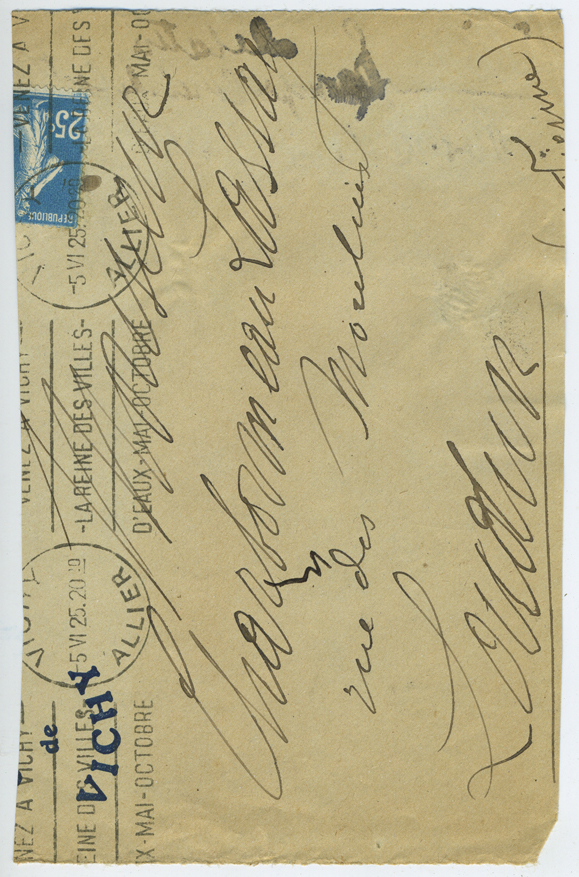 NEZ A VICHY
VENEZ A VICHY
VENEZ A V
EINE DES VILLES-
-LA REINE DES VILLES-
REINE DES
X-MAI-OCTOBRE
D'EAUX-MAI-OCTOBRE
MAI-OC
5 VI 25.20
ALLIER
5 VI 25.20
ALLIER
25c
REPUBLIQUE
de
VICHY
Charbonneau Lassay
rue des Moulins
Loudun
(Vienne)